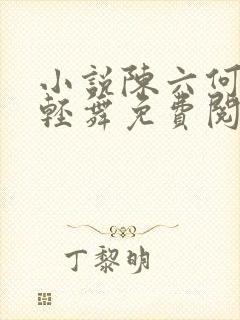 小説陳六何
輕舞免費閱
丁黎明